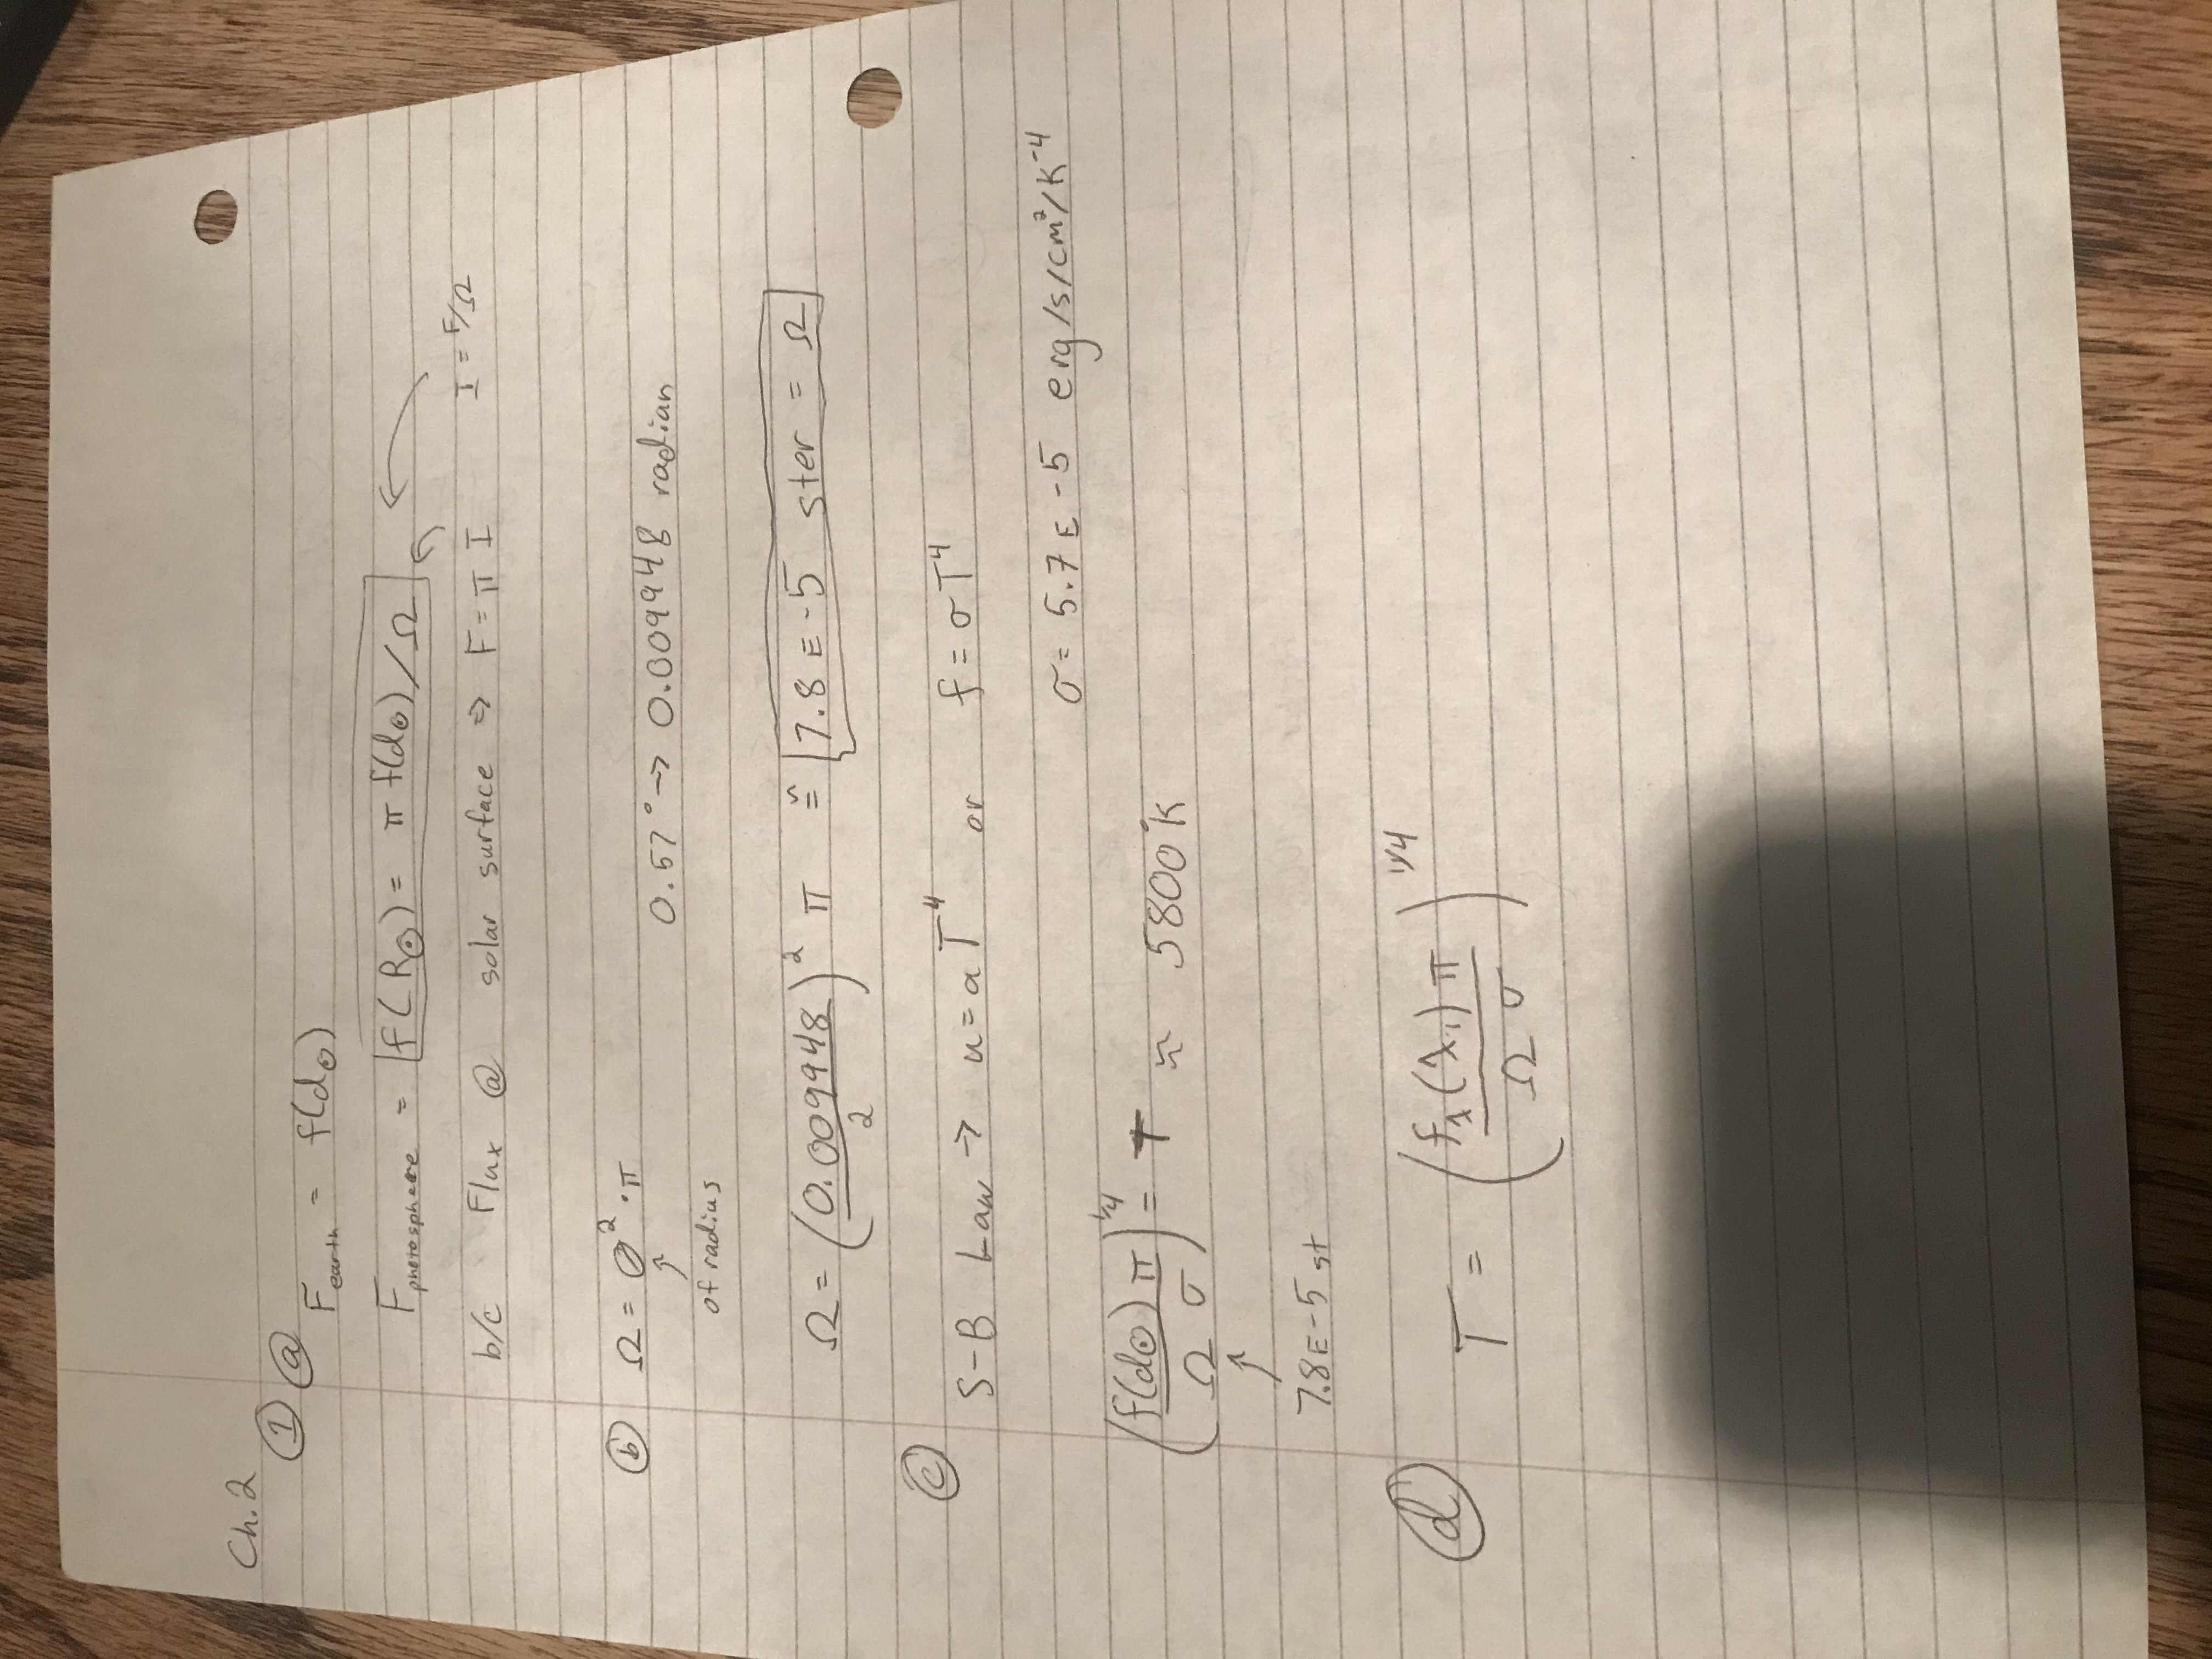 Ch.2
① ⓐ
F_earth = f(d⊙)
F_photosphere = f(R⊙) = π f(d⊙)/Ω
b/c Flux @ solar surface ⇒ F = π I I = F/Ω
ⓑ Ω = θ² · π
↑
of radius
0.57° → 0.009948 radian
Ω = (0.009948/2)² π ≅ 7.8 E-5 ster = Ω
ⓒ
S-B Law → u = aT⁴ or f = σT⁴
σ = 5.7 E-5 erg/s/cm²/K⁻⁴
(f(d⊙) π / Ω σ)^1/4 = T ≈ 5800°K
↑
7.8E-5 st
ⓓ
T = (f_λ(λ₁) π / Ω σ)^1/4